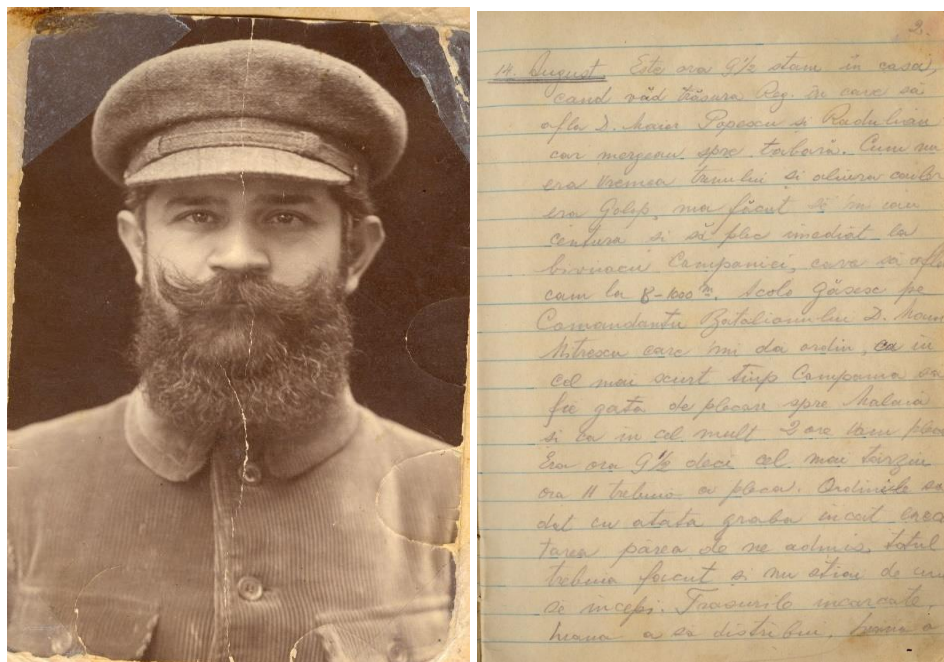 2.
14. August Este ora 9½ stam în casă,
cand văd trăsura Reg. în care să
afla D. Maior Popescu si Radulian
car mergeau spre tabară. Cum nu
era vremea trenului si alura
era Golop, ma făcut si
centura si să plec imediat la
bivuacu Companiei, care să afla
cam la 8-1000 m. Acolo găsesc pe
Comandantu Batalionului D. Maior
care imi da ordin, ca in
cel mai scurt timp Compania sa
fie gata de plecare spre Malaia
si ca in cel mult 2 ore
Era ora 9½ deci cel mai târziu
ora 11 trebuia a pleca. Ordinele sa
dat cu atata graba incat
tarea părea de ne admis, totul
trebuia facut si nu stiai de
se incepi. Trasurile incarcate,
hrana a sa distribui,